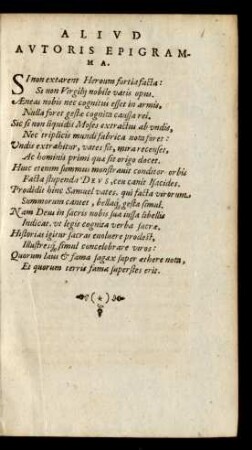 ALIVD
AVTORIS EPIGRAM-
MA.
SI non extarent Heroum fortia facta:
Si non Vergilij nobile vatis opus.
Æneas nobis nec cognitus esset in armis,
Nulla foret gestæ cognita caussa rei.
Sic si non liquidis Moses extractus ab vndis,
Nec triplicis mundi fabrica nota foret:
Vndis extrahitur, vates fit, mira recenset,
Ac hominis primi quæ sit origo docet.
Huic etenim summus monstrauit conditor orbis
Facta stupenda DEVS, ceu canit Isacides.
Prodidit hinc Samuel vates, qui facta virorum
Summorum caneret, bellaq; gesta simul.
Nam Deus in sacris nobis sua iussa libellis
Indicat, vt legis cognita verba sacræ.
Historias igitur sacras euoluere prodest,
Illustresq; simul concelebrare viros:
Quorum laus & fama sagax super æthere nota,
Et quorum terris fama superstes erit.
(*)